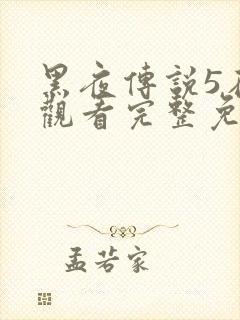 黑夜傳說5
觀看完整免
孟若家